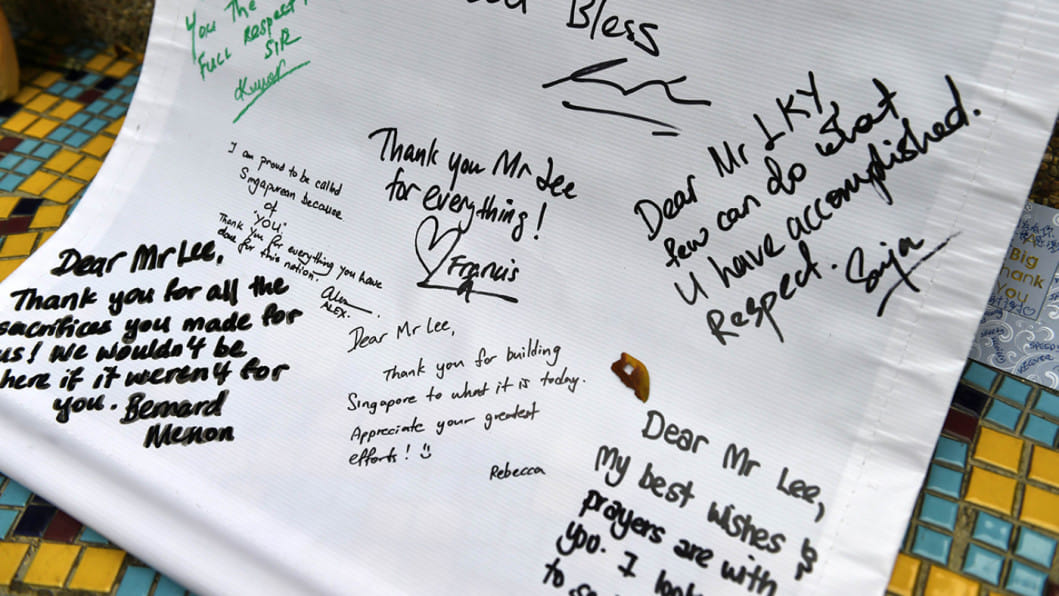 You The
Full Respect!
SIR
Kumar
God Bless
Thank you Mr Lee
for everything!
Francis
Dear Mr LKY,
few can do what
U have accomplished.
Respect.
I am proud to be called
Singapurean because
of
'YOU'
Thank you for everything you have
done for this nation.
Alex
ALEX.
Dear Mr Lee,
Thank you for all the
sacrifices you made for
us! We wouldn't be
here if it weren't for
you. Bernard
Menon
Dear Mr Lee,
Thank you for building
Singapore to what it is today.
Appreciate your greatest
efforts!
Rebecca
Dear Mr Lee,
My best wishes &
prayers are with
you. I look
to
Big
Thank
You